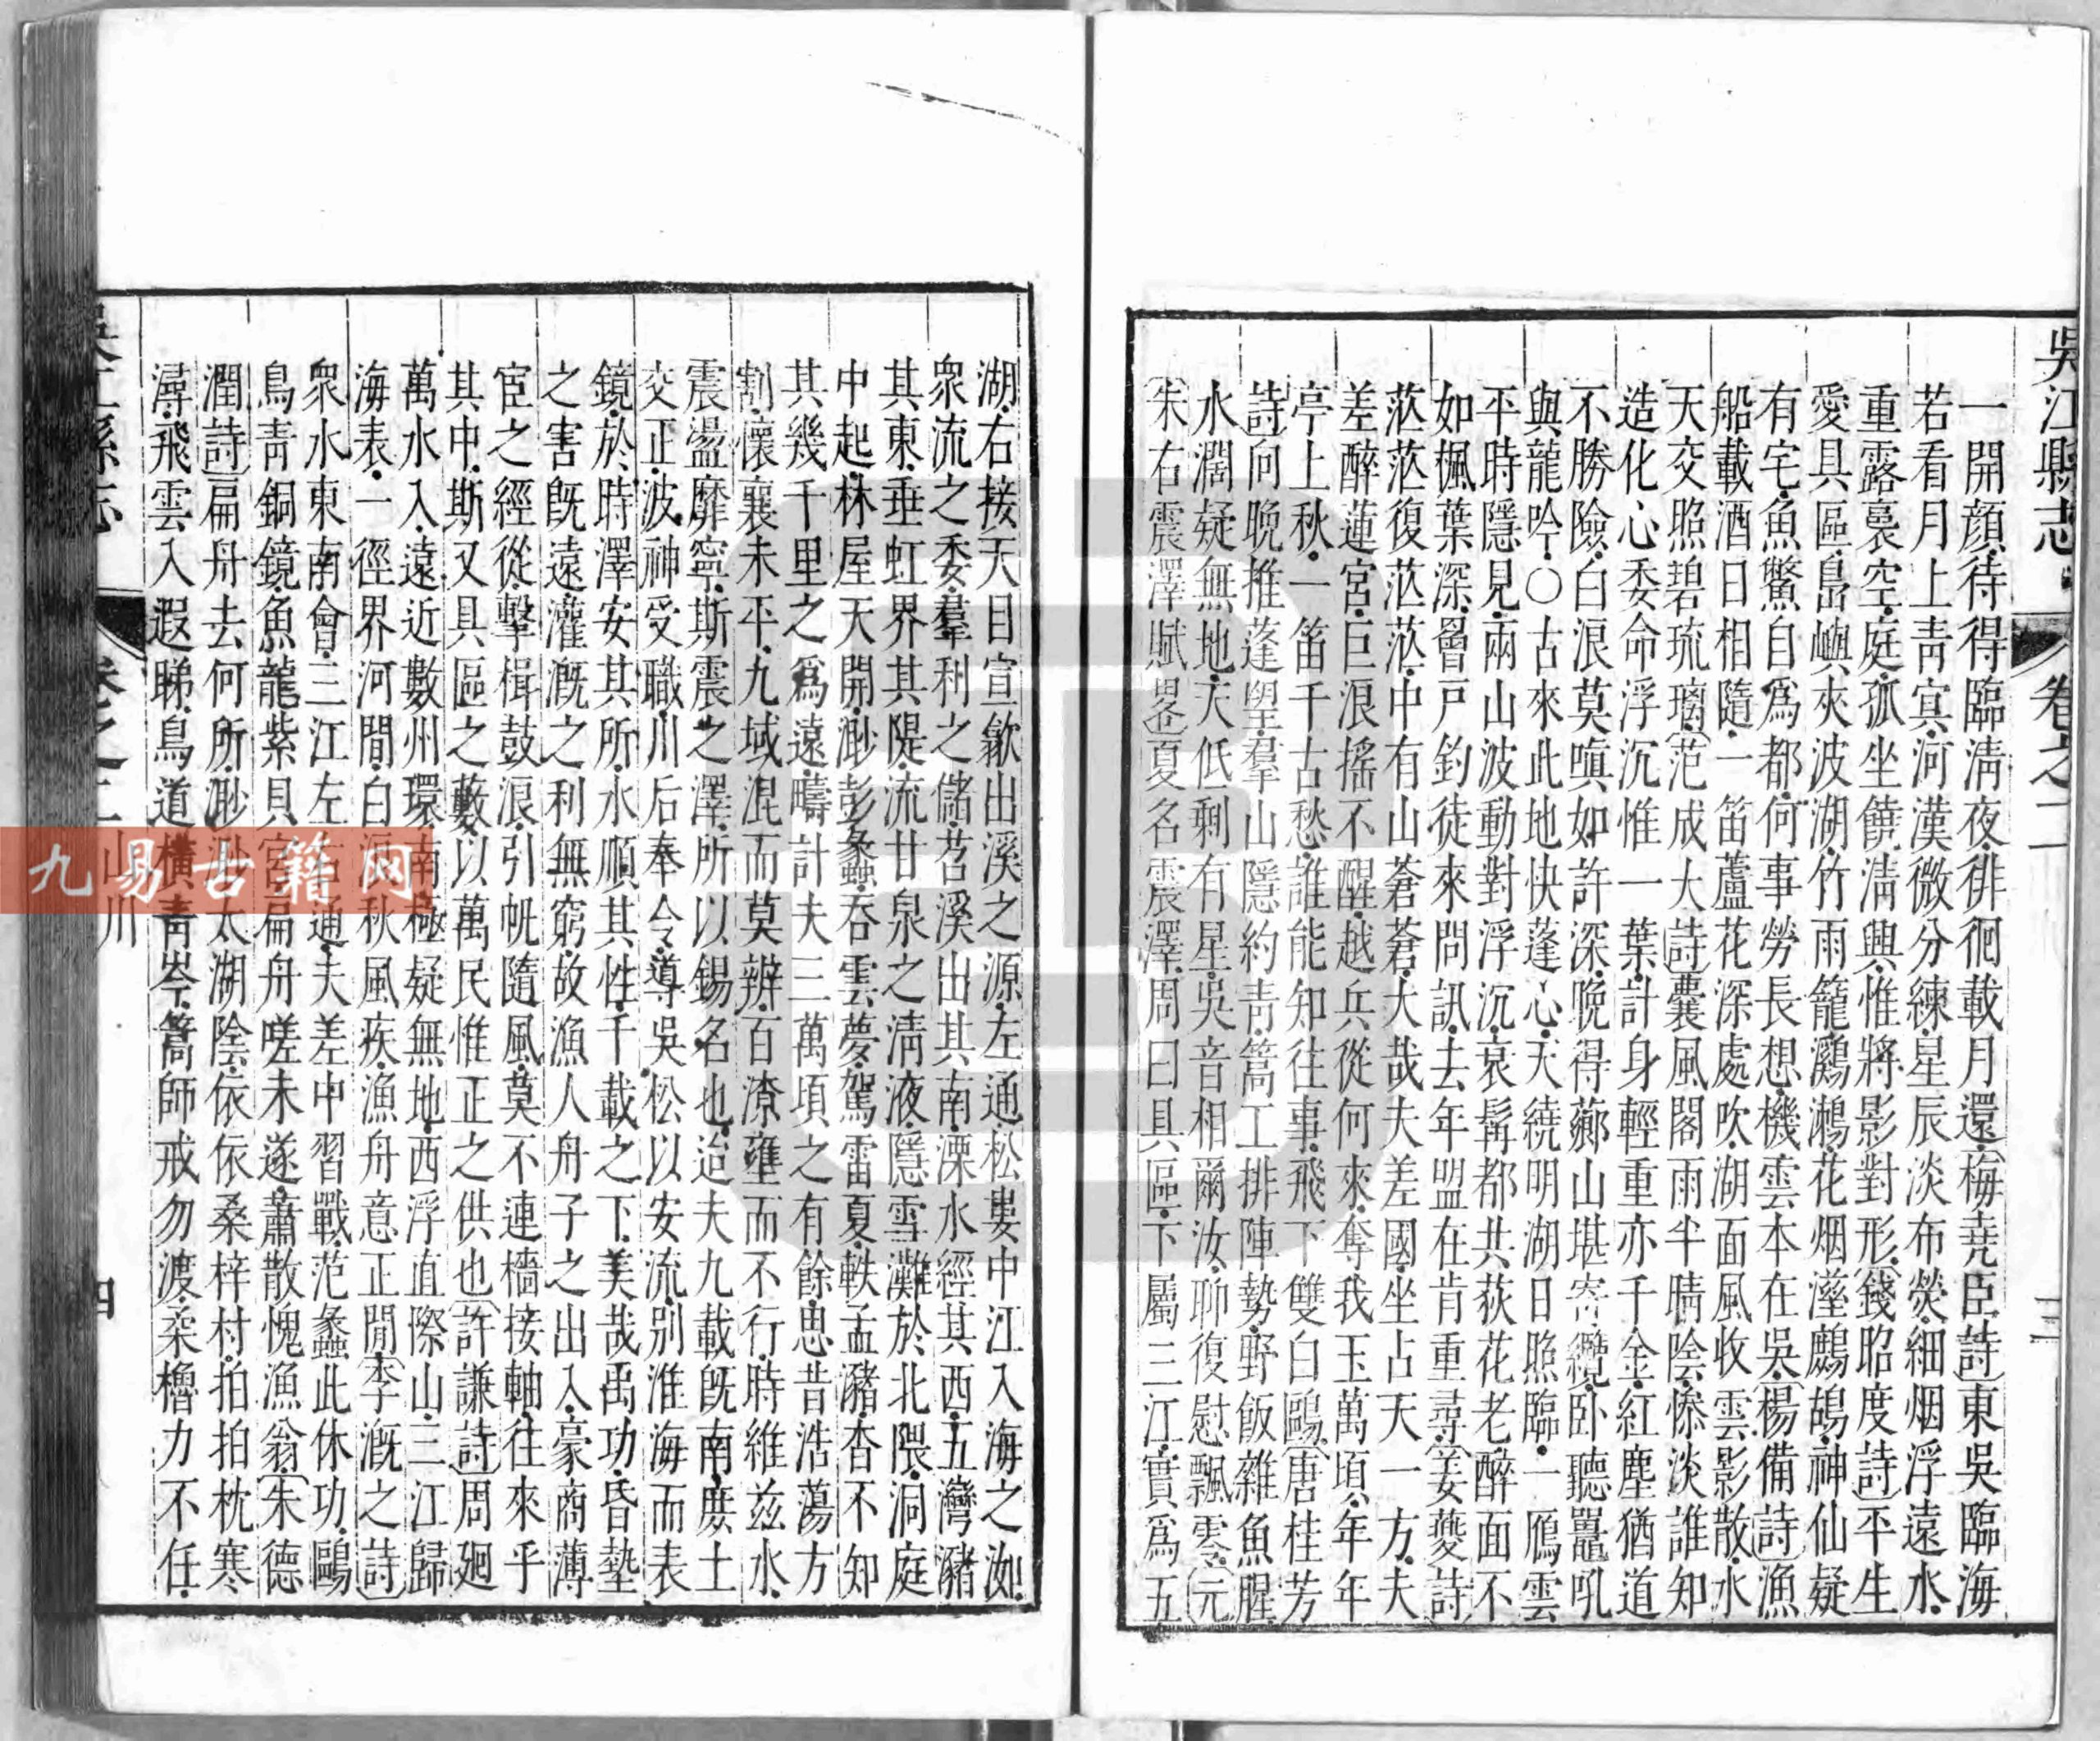 吳江縣志 卷之二 三
一開顔待得臨淸夜徘徊載月還梅堯臣詩東吳臨海
若看月上靑㝠河漢微分練星辰淡布熒細烟浮遠水
重露裛空庭孤坐饒淸興惟將影對形錢昭度詩平生
愛具區島嶼夾波湖竹雨籠鸂鶒花烟溼鷓鴣神仙疑
有宅魚鱉自爲都何事勞長想機雲本在吳楊備詩漁
船載酒日相隨一笛蘆花深處吹湖面風收雲影散水
天交照碧琉璃范成大詩囊風閣雨半晴陰慘淡誰知
造化心委命浮沉惟一葉計身輕重亦千金紅塵猶道
不勝險白浪莫嗔如許深晩得薌山堪寄纜卧聽鼉吼
與龍吟〇古來此地快蓬心天繞明湖日照臨一鴈雲
平時隱見兩山波動對浮沉衰髯都共荻花老醉面不
如楓葉深罾戶釣徒來問訊去年盟在肯重尋姜夔詩
茫茫復茫茫中有山蒼蒼大哉夫差國坐占天一方夫
差醉蓮宮巨浪摇不醒越兵從何來奪我玉萬頃年年
亭上秋一笛千古愁誰能知往事飛下雙白鷗唐桂芳
詩向晩推蓬望羣山隱約靑篙工排陣勢野飯雜魚腥
水濶疑無地天低剩有星吳音相爾汝聊復慰飄零元
朱右震澤賦畧夏名震澤周曰具區下屬三江實爲五
湖右接天目宣歙出溪之源左通松婁中江入海之洳
衆流之委羣利之儲苕溪出其南溧水經其西五灣瀦
其東垂虹界其隄流甘泉之淸液隱雪灘於北隈洞庭
中起林屋天開渺彭蠡吞雲夢駕雷夏軼孟瀦杳不知
其幾千里之爲遠疇計夫三萬頃之有餘思昔浩蕩方
割懷襄未平九域混而莫辨百潦壅而不行時維兹水
震盪靡寧斯震之澤所以錫名也迨夫九載旣南庶土
交正波神受職川后奉令導吳松以安流别淮海而表
鏡於時澤安其所水順其性千載之下美哉禹功昏墊
之害旣遠灌漑之利無窮故漁人舟子之出入豪商薄
宦之經從擊楫鼓浪引帆隨風莫不連檣接軸往來乎
其中斯又具區之藪以萬民惟正之供也許謙詩周廻
萬水入遠近數州環南極疑無地西浮直際山三江歸
海表一徑界河間白浪秋風疾漁舟意正閒李漑之詩
衆水東南會三江左右通夫差中習戰范蠡此休功鷗
鳥靑銅鏡魚龍紫貝宮扁舟嗟未遂蕭散愧漁翁朱德
潤詩扁舟去何所渺渺太湖陰依依桑梓村拍拍枕寒
潯飛雲入遐睇鳥道橫靑岑篙師戒勿渡柔櫓力不任
吳江縣志 卷之二 山川 四
九易古籍网